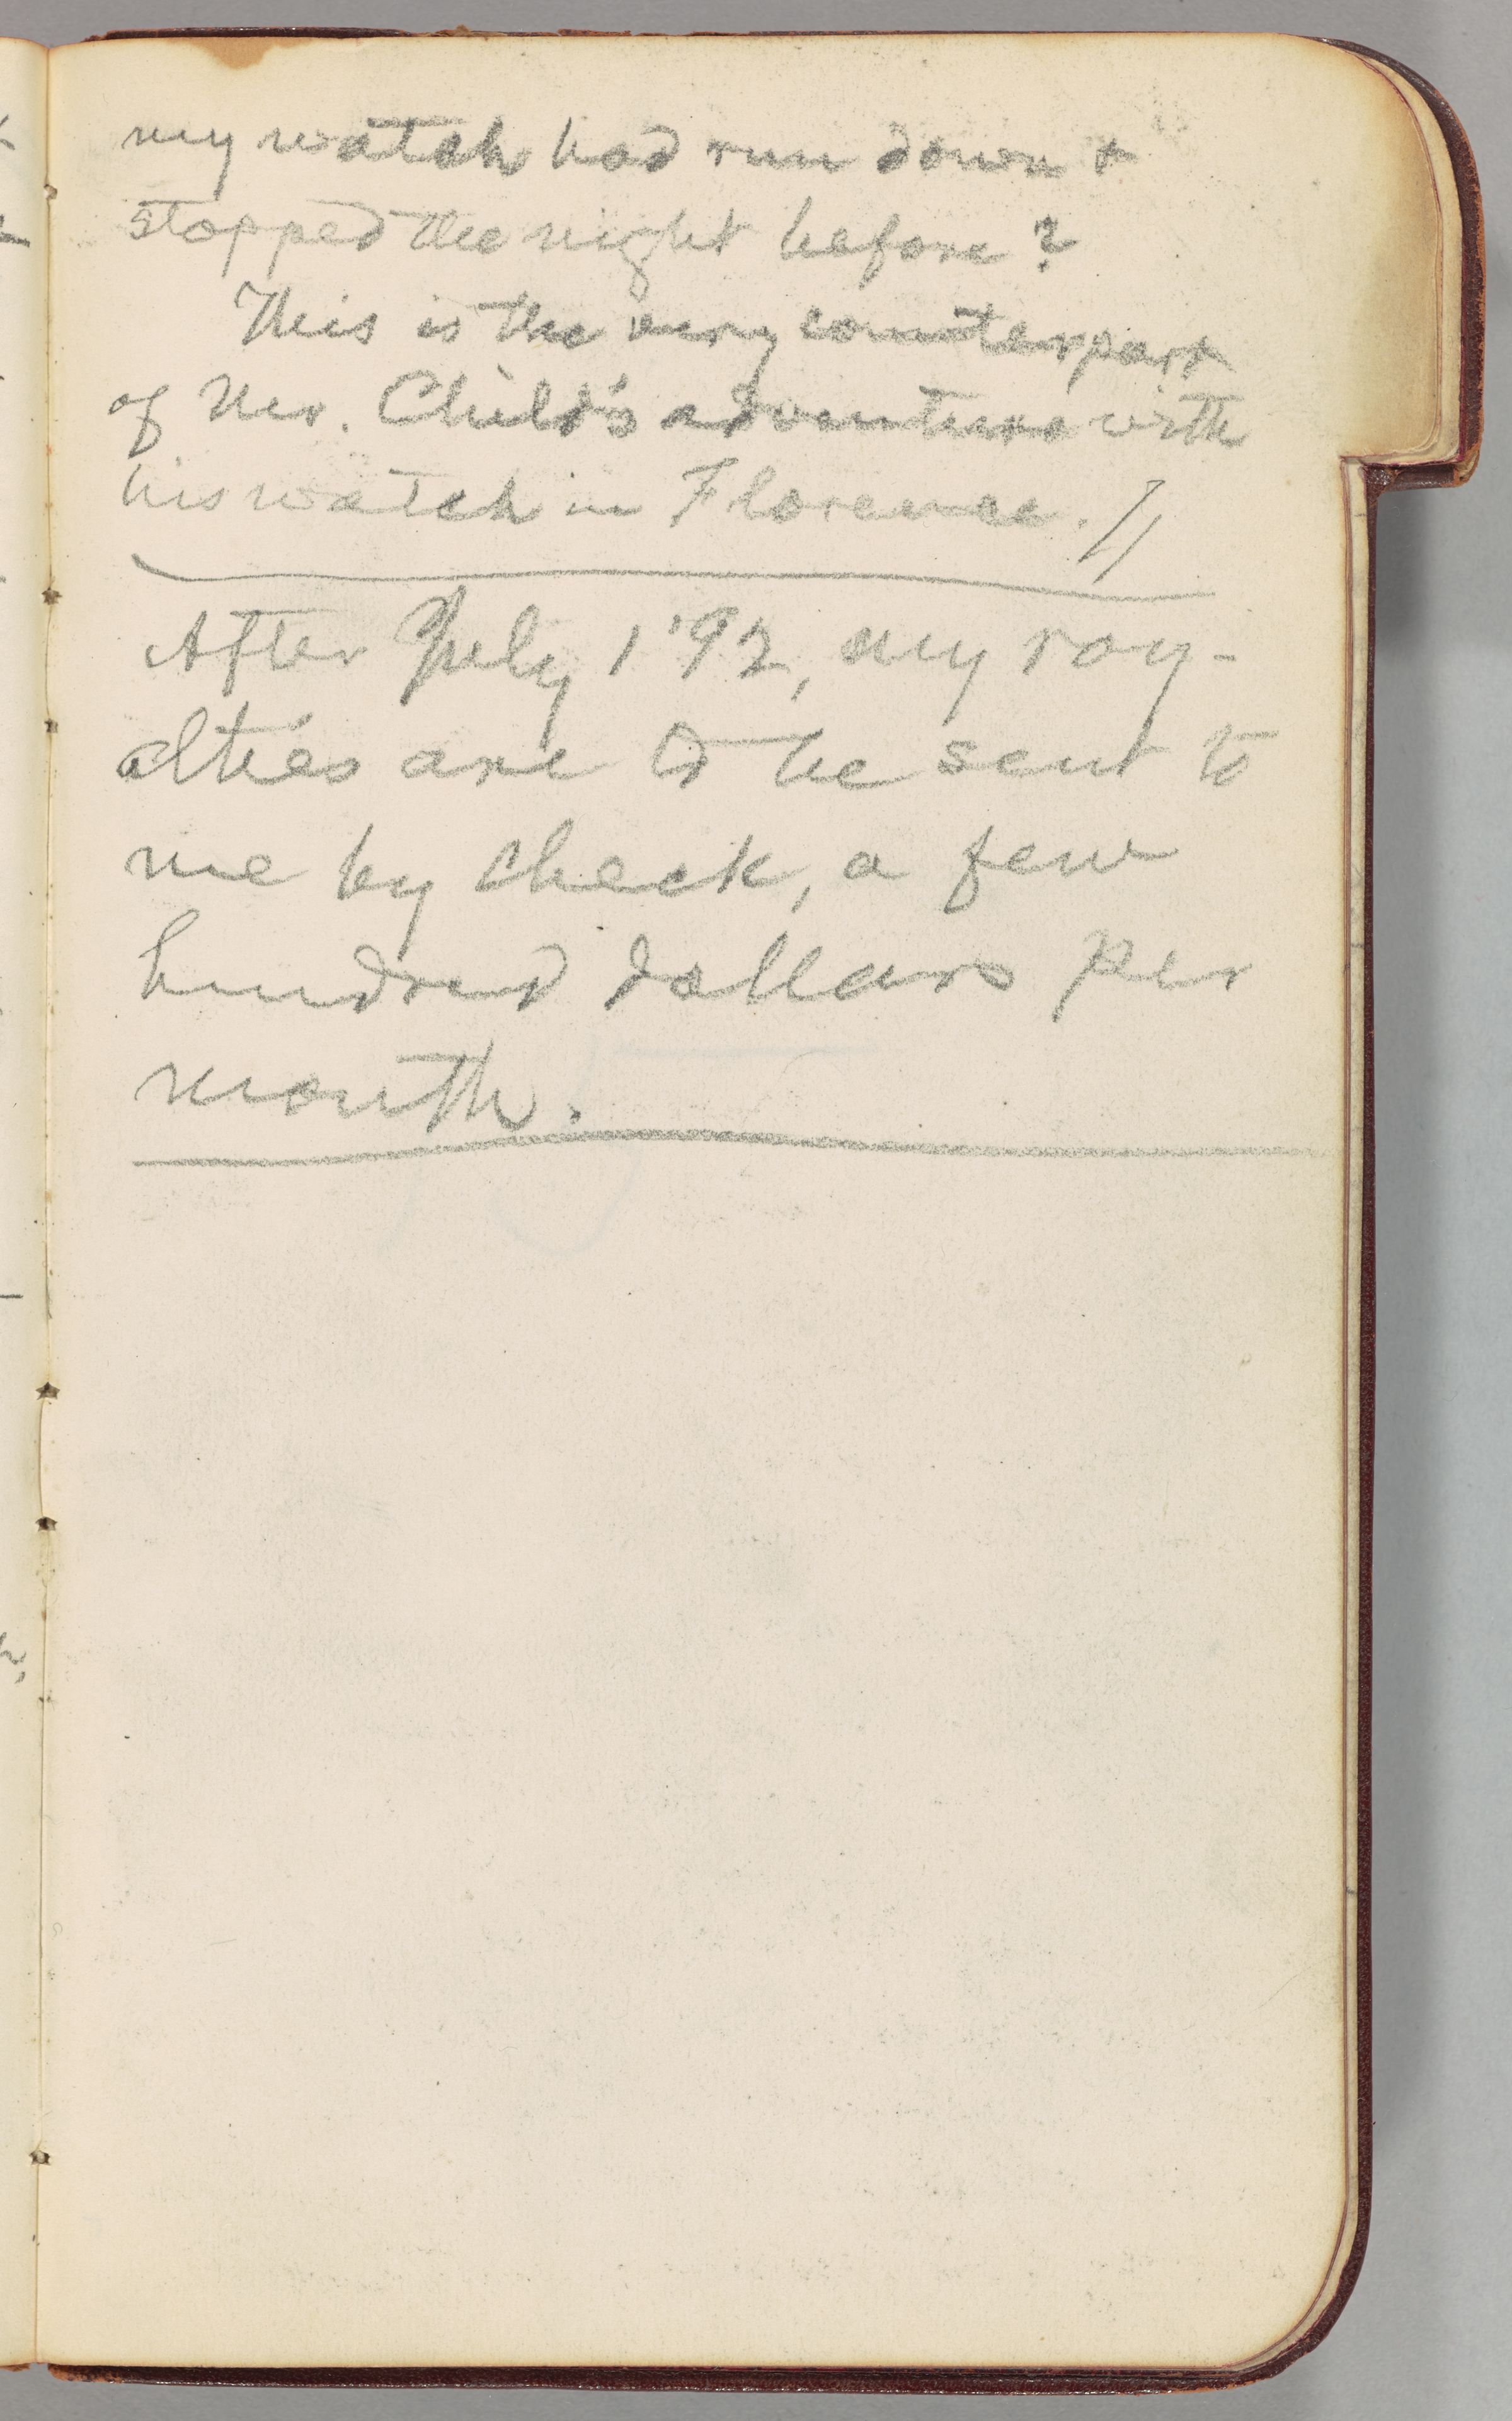 my watch had run down &
stopped the night before?
This is the very counterpart
of Mr. Child's adventure with
his watch in Florence.
After July 1 '92, my roy-
alties are to be sent to
me by check, a few
hundred dollars per
month.